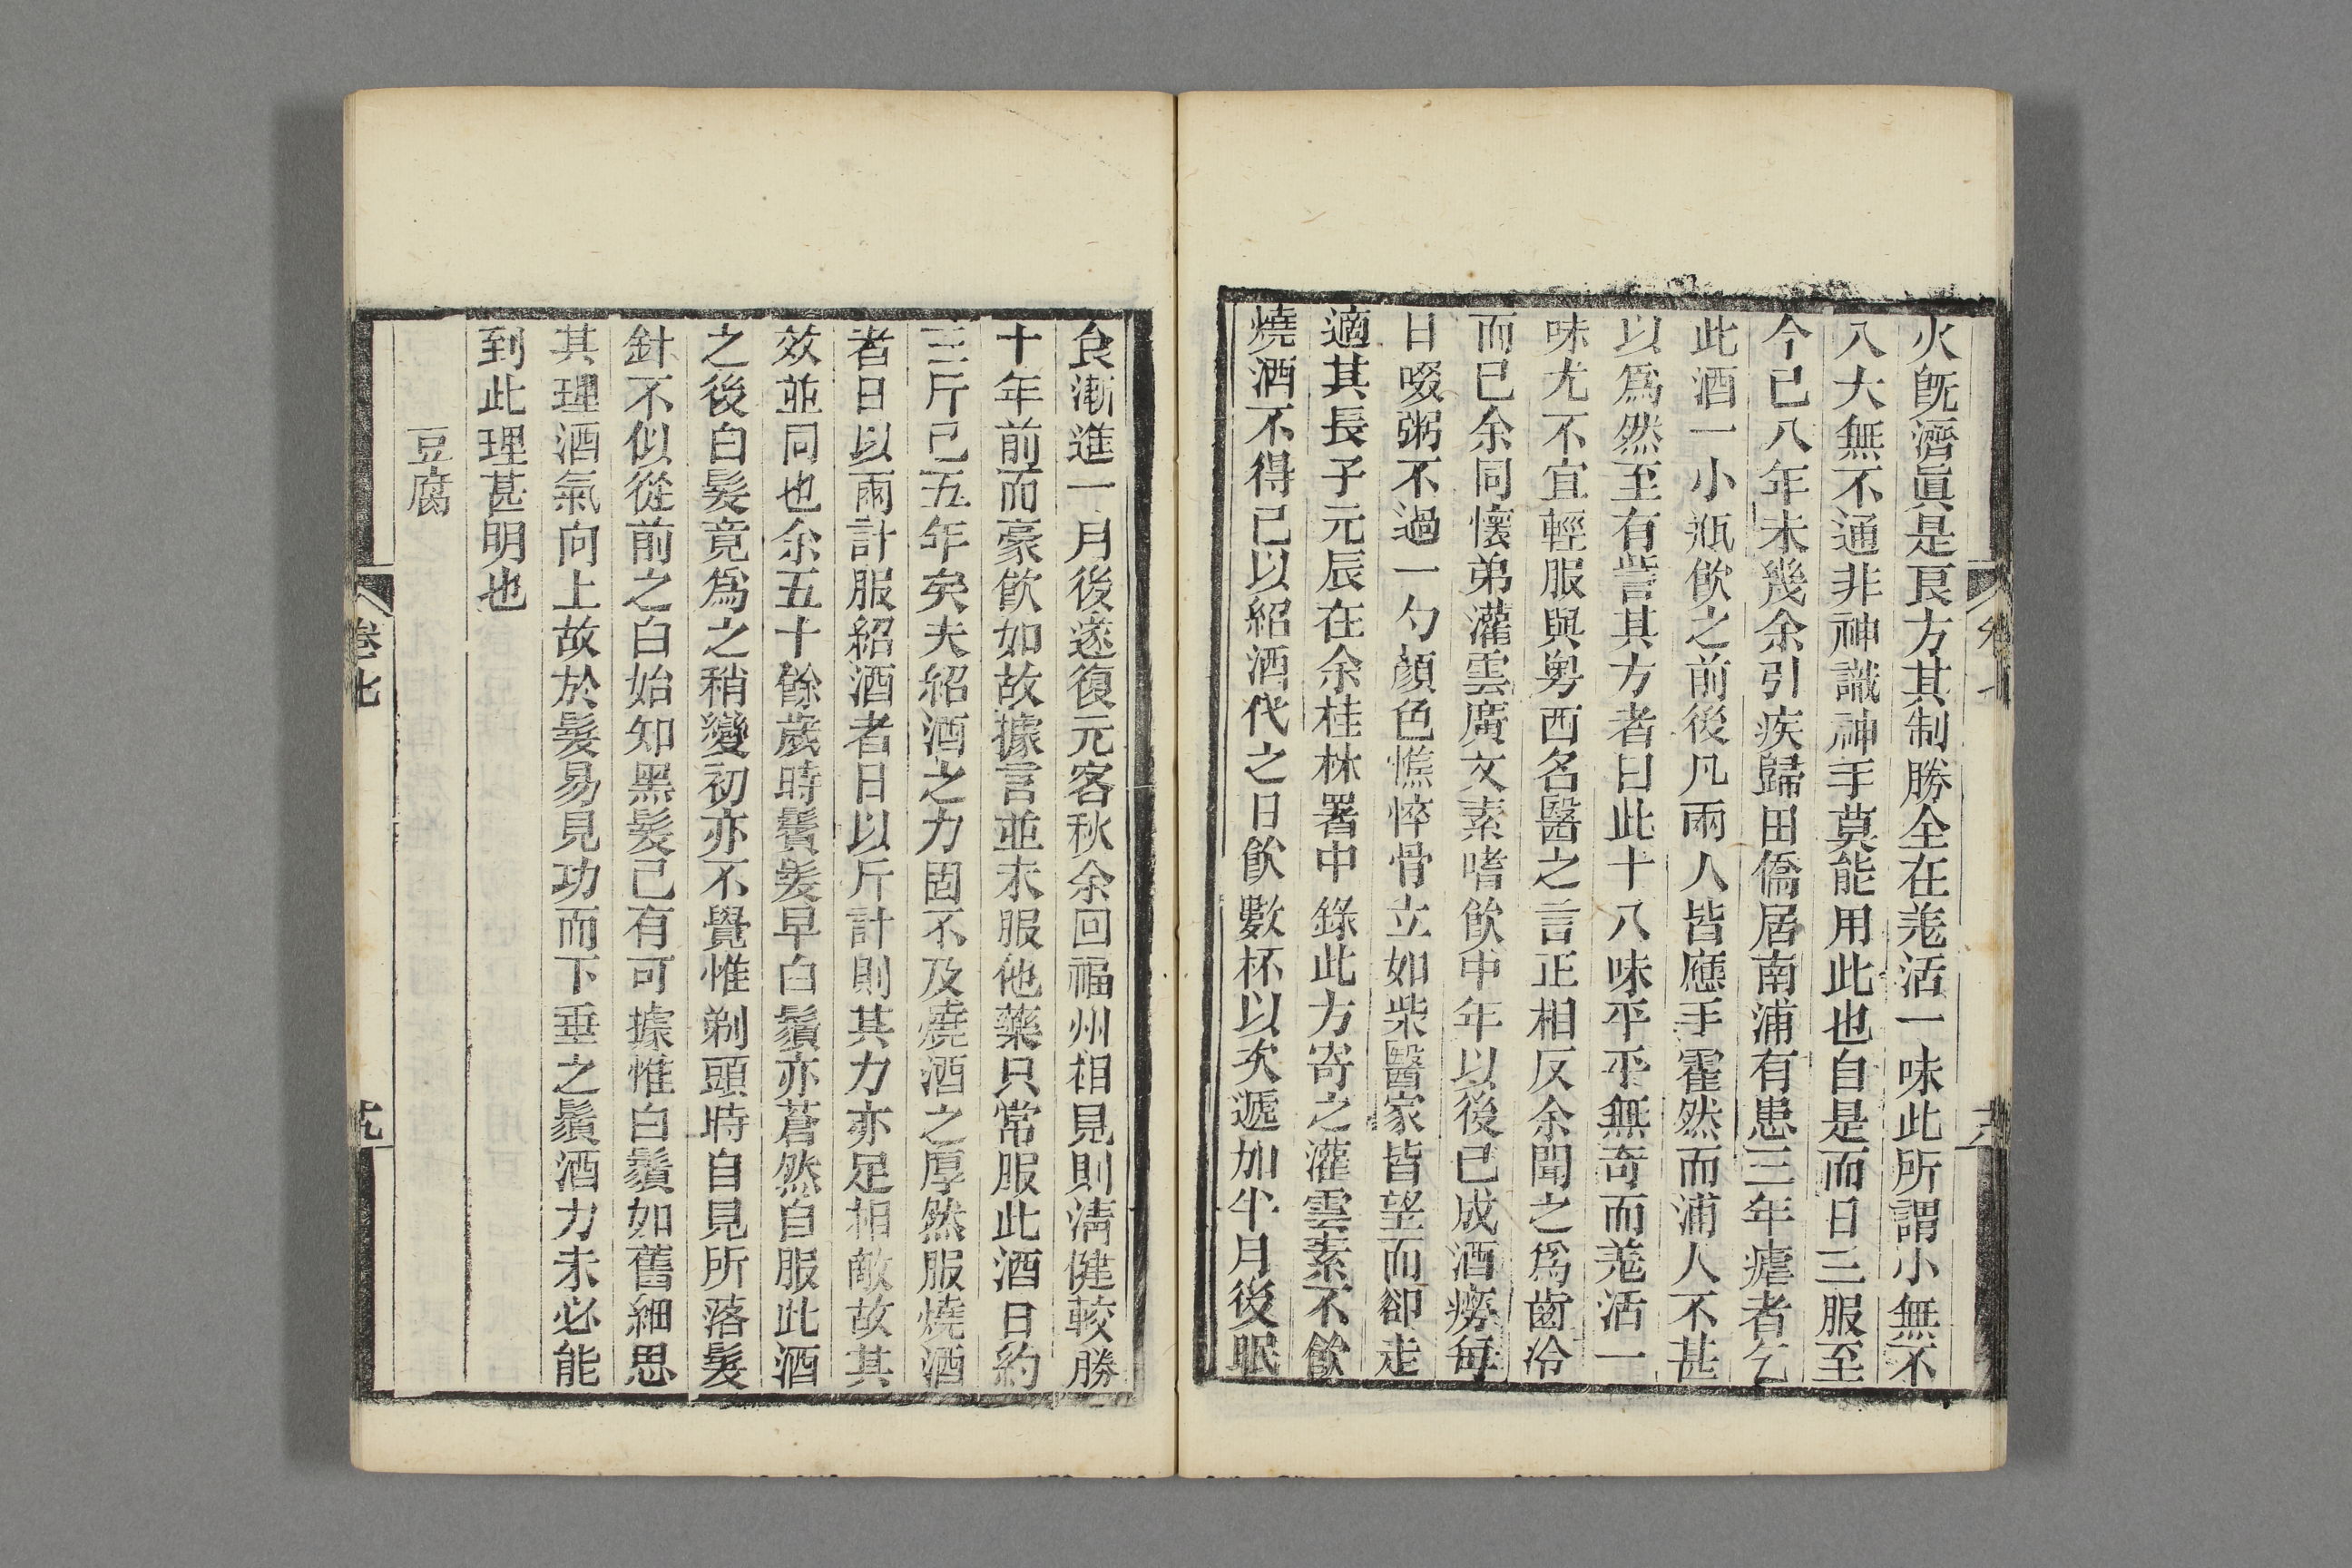 火旣濟眞是良方其制勝全在羌活一味此所謂小無不
八大無不通非神識神手莫能用此也自是而日三服至
今已八年未幾余引疾歸田僑居南浦有患三年瘧者乞
此酒一小瓶飲之前後凡兩人皆應手霍然而浦人不甚
以爲然至有訾其方者曰此十八味平平無奇而羌活一
味尤不宜輕服與粤西名醫之言正相反余聞之爲齒冷
而已余同懷弟灌雲廣文素嗜飲中年以後已成酒癆每
日啜粥不過一勺顏色憔悴骨立如柴醫家皆望而卻走
適其長子元辰在余桂林署中錄此方寄之灌雲素不飲
燒酒不得已以紹酒代之日飲數杯以次遞加半月後眠
食漸進一月後遂復元客秋余回福州相見則淸健較勝
十年前而豪飲如故據言並未服他藥只常服此酒日約
三斤已五年矣夫紹酒之力固不及燒酒之厚然服燒酒
者日以兩計服紹酒者日以斤計則其力亦足相敵故其
效並同也余五十餘歲時鬢髮早白鬚亦蒼然自服此酒
之後白髮竟爲之稍變初亦不覺惟剃頭時自見所落髮
針不似從前之白始知黑髮已有可據惟白鬚如舊細思
其理酒氣向上故於髮易見功而下垂之鬚酒力未必能
到此理甚明也
豆腐
卷七